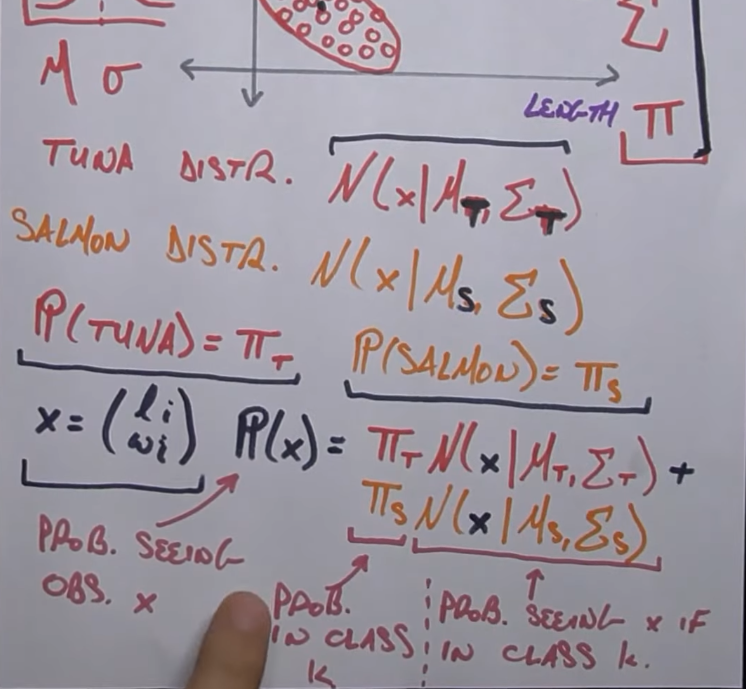 Σ
M σ
LENGTH
π
TUNA DISTR. N(x|M_T, Σ_T)
SALMON DISTR. N(x|M_S, Σ_S)
P(TUNA) = π_T
P(SALMON) = π_S
x = (l_i
w_i)
P(x) = π_T N(x|M_T, Σ_T) +
π_S N(x|M_S, Σ_S)
PROB. SEEING
OBS. x
PROB.
IN CLASS
k
PROB. SEEING x IF
IN CLASS k.